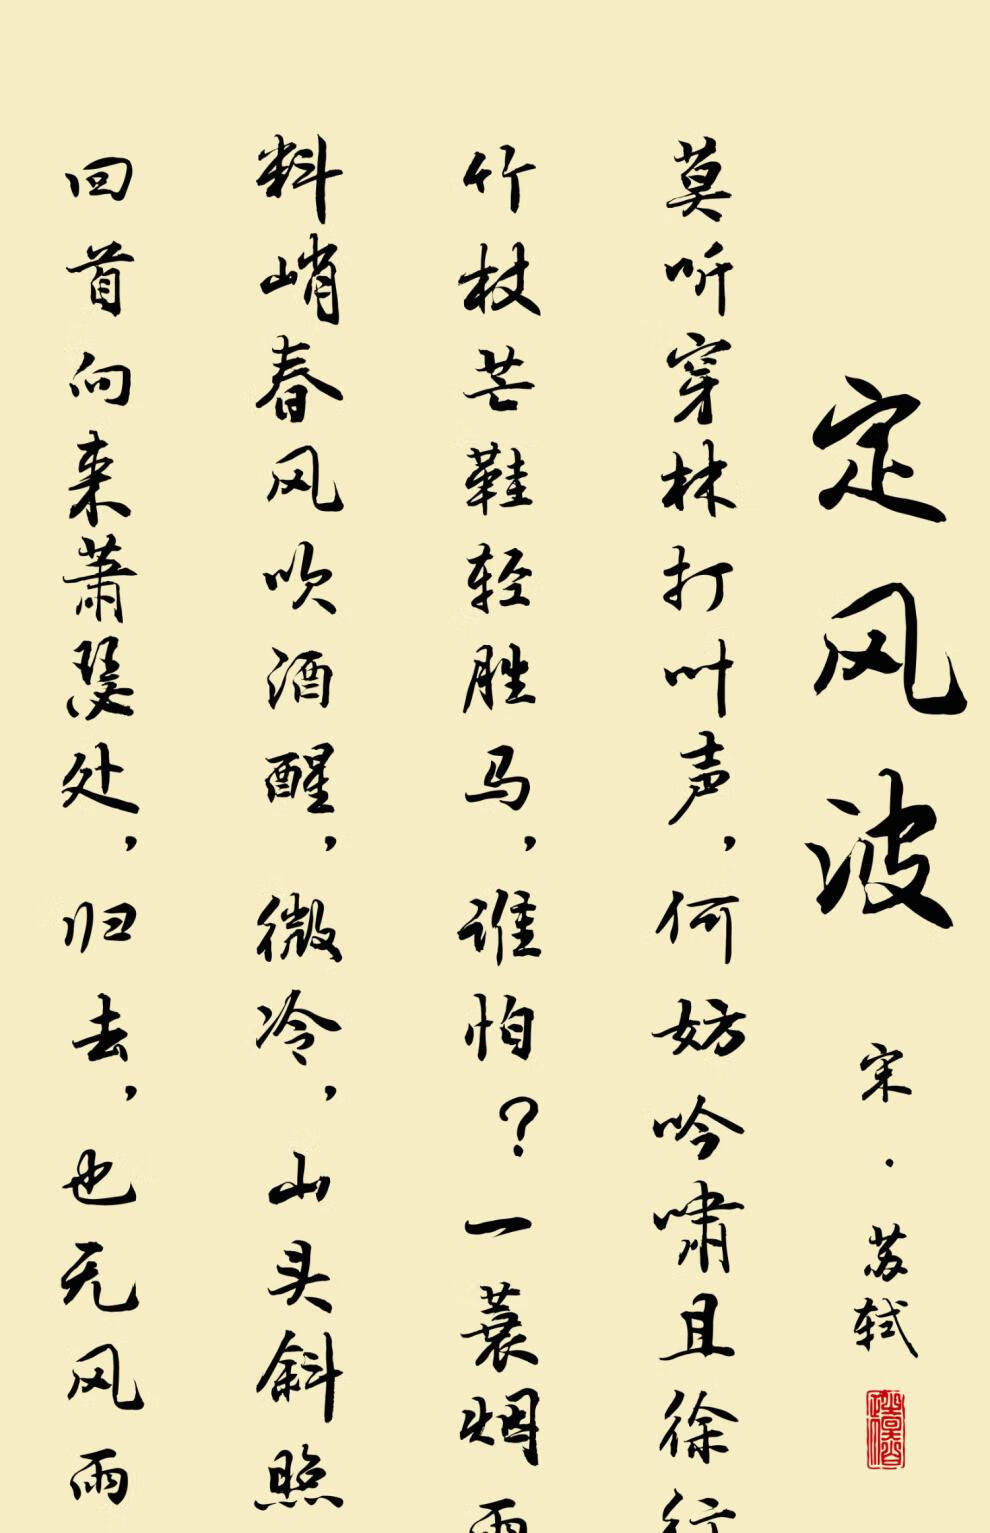 定风波
宋·苏轼
莫听穿林打叶声，何妨吟啸且徐行
竹杖芒鞋轻胜马，谁怕？一蓑烟雨
料峭春风吹酒醒，微冷，山头斜照
回首向来萧瑟处，归去，也无风雨